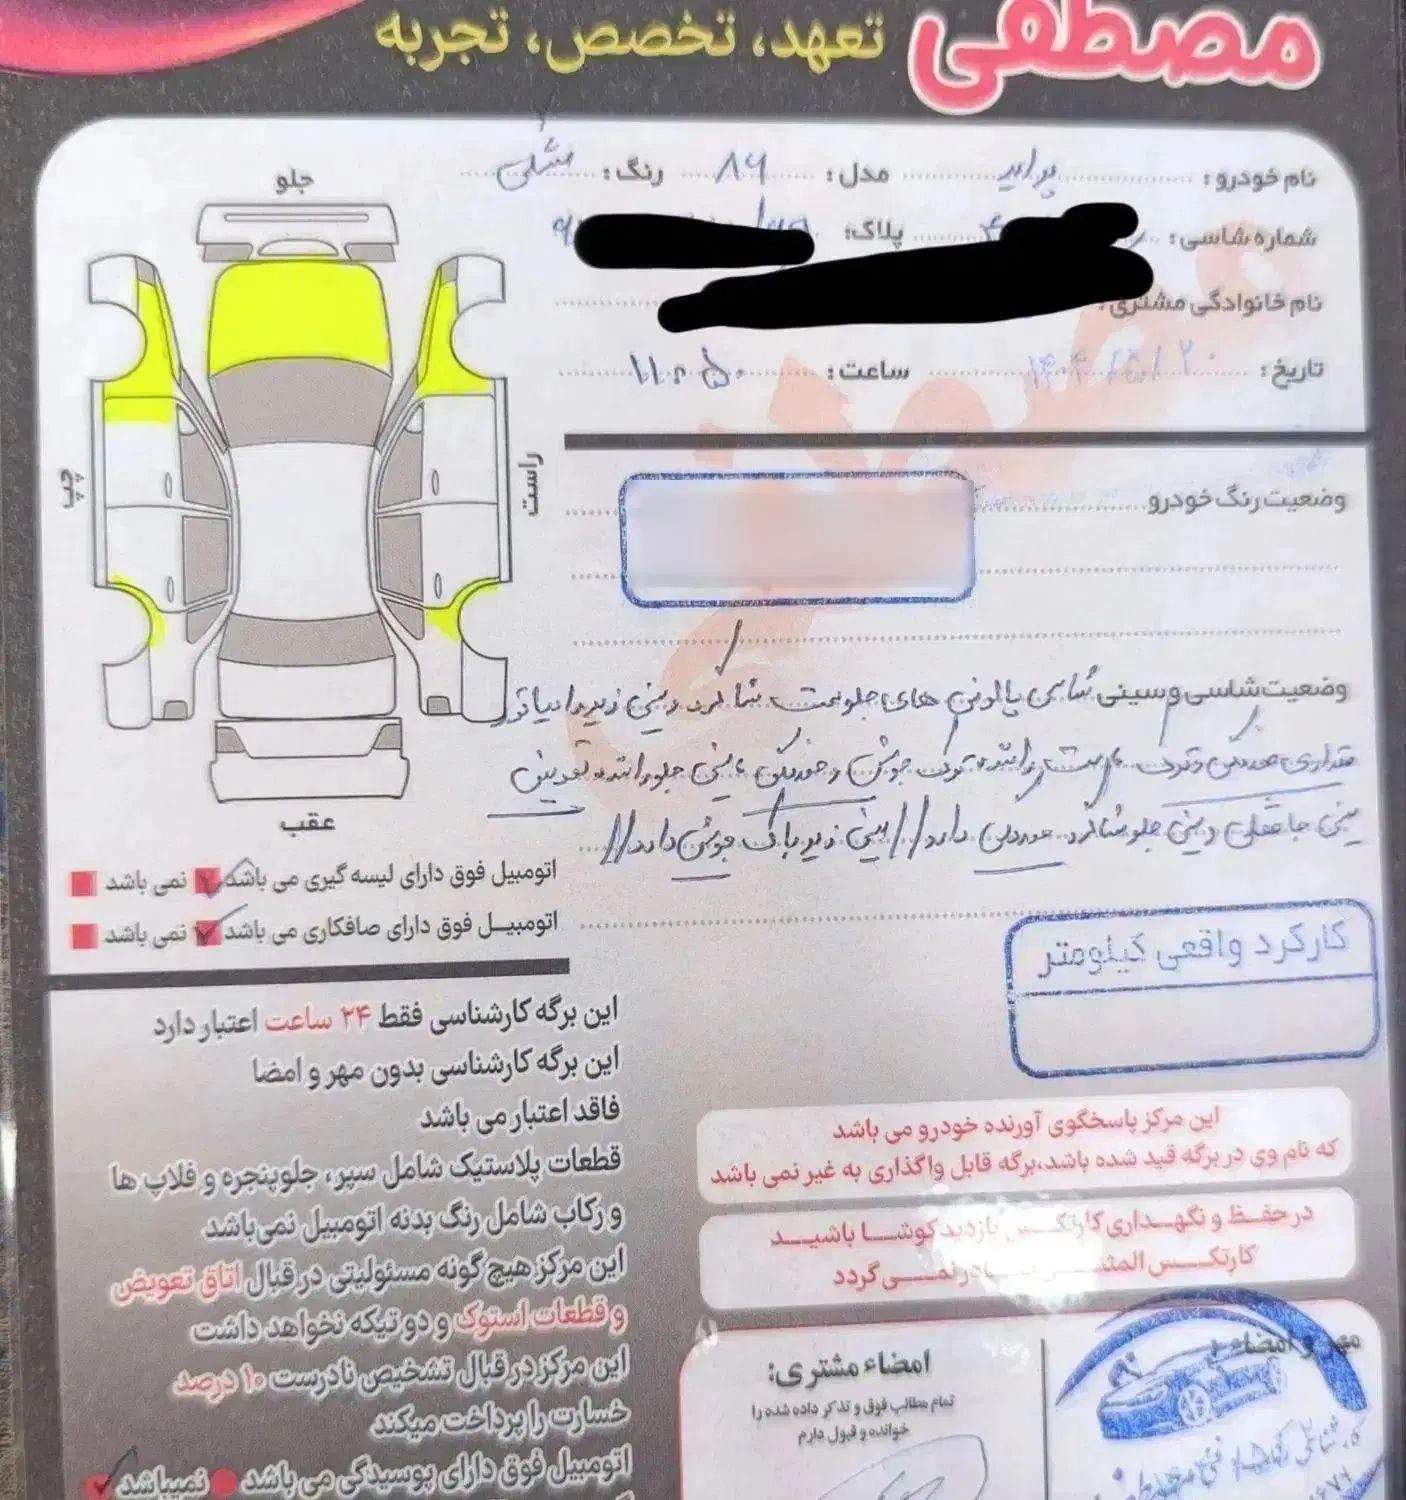 مصطفی
تعهد، تخصص، تجربه
نام خودرو: پراید مدل: ۸۶ رنگ: مشکی
شماره شاسی: پلاک:
نام خانوادگی مشتری:
تاریخ: ۱۴۰۴/۵/۲۰ ساعت: ۱۱:۵۰
جلو
چپ
راست
عقب
وضعیت رنگ خودرو
وضعیت شاسی و سینی شاسی پالونی های جلو سمت شاگرد و سینی زیر رادیاتور
مقداری خوردگی و ترک، راننده ترک جوش و خوردگی، سینی جلو راننده تعویض
سینی جلو شاگرد خوردگی دارد// سینی زیر باک جوش دارد//
اتومبیل فوق دارای لیسه گیری می باشد نمی باشد
اتومبیل فوق دارای صافکاری می باشد نمی باشد
کارکرد واقعی کیلومتر
این برگه کارشناسی فقط ۲۴ ساعت اعتبار دارد
این برگه کارشناسی بدون مهر و امضا
فاقد اعتبار می باشد
قطعات پلاستیک شامل سپر، جلوپنجره و فلاپ ها
و رکاب شامل رنگ بدنه اتومبیل نمی‌باشد
این مرکز هیچ گونه مسئولیتی در قبال اتاق تعویض
و قطعات استوک و دو تیکه نخواهد داشت
این مرکز در قبال تشخیص نادرست ۱۰ درصد
خسارت را پرداخت میکند
اتومبیل فوق دارای پوسیدگی می باشد نمیباشد
این مرکز پاسخگوی آورنده خودرو می باشد
که نام وی در برگه قید شده باشد،برگه قابل واگذاری به غیر نمی باشد
در حفظ و نگهداری کارتکس بازدید کوشا باشید
کارتکس المثنی صادر نمی گردد
امضاء مشتری:
تمام مطالب فوق و تذکر داده شده را
خوانده و قبول دارم
مهر و امضاء